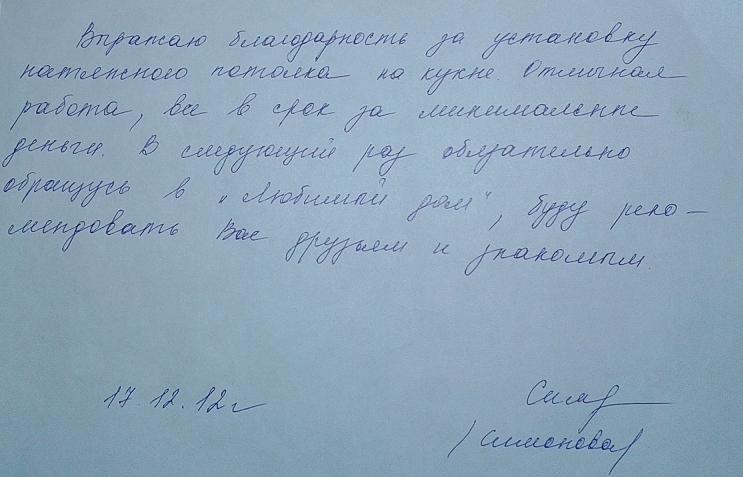 Выражаю благодарность за установку
натяжного потолка на кухне. Отличная
работа, все в срок за минимальные
деньги. В следующий раз обязательно
обращусь в "Любимый дом", буду реко-
мендовать Вас друзьям и знакомым.
17.12.12г
/Симонова/